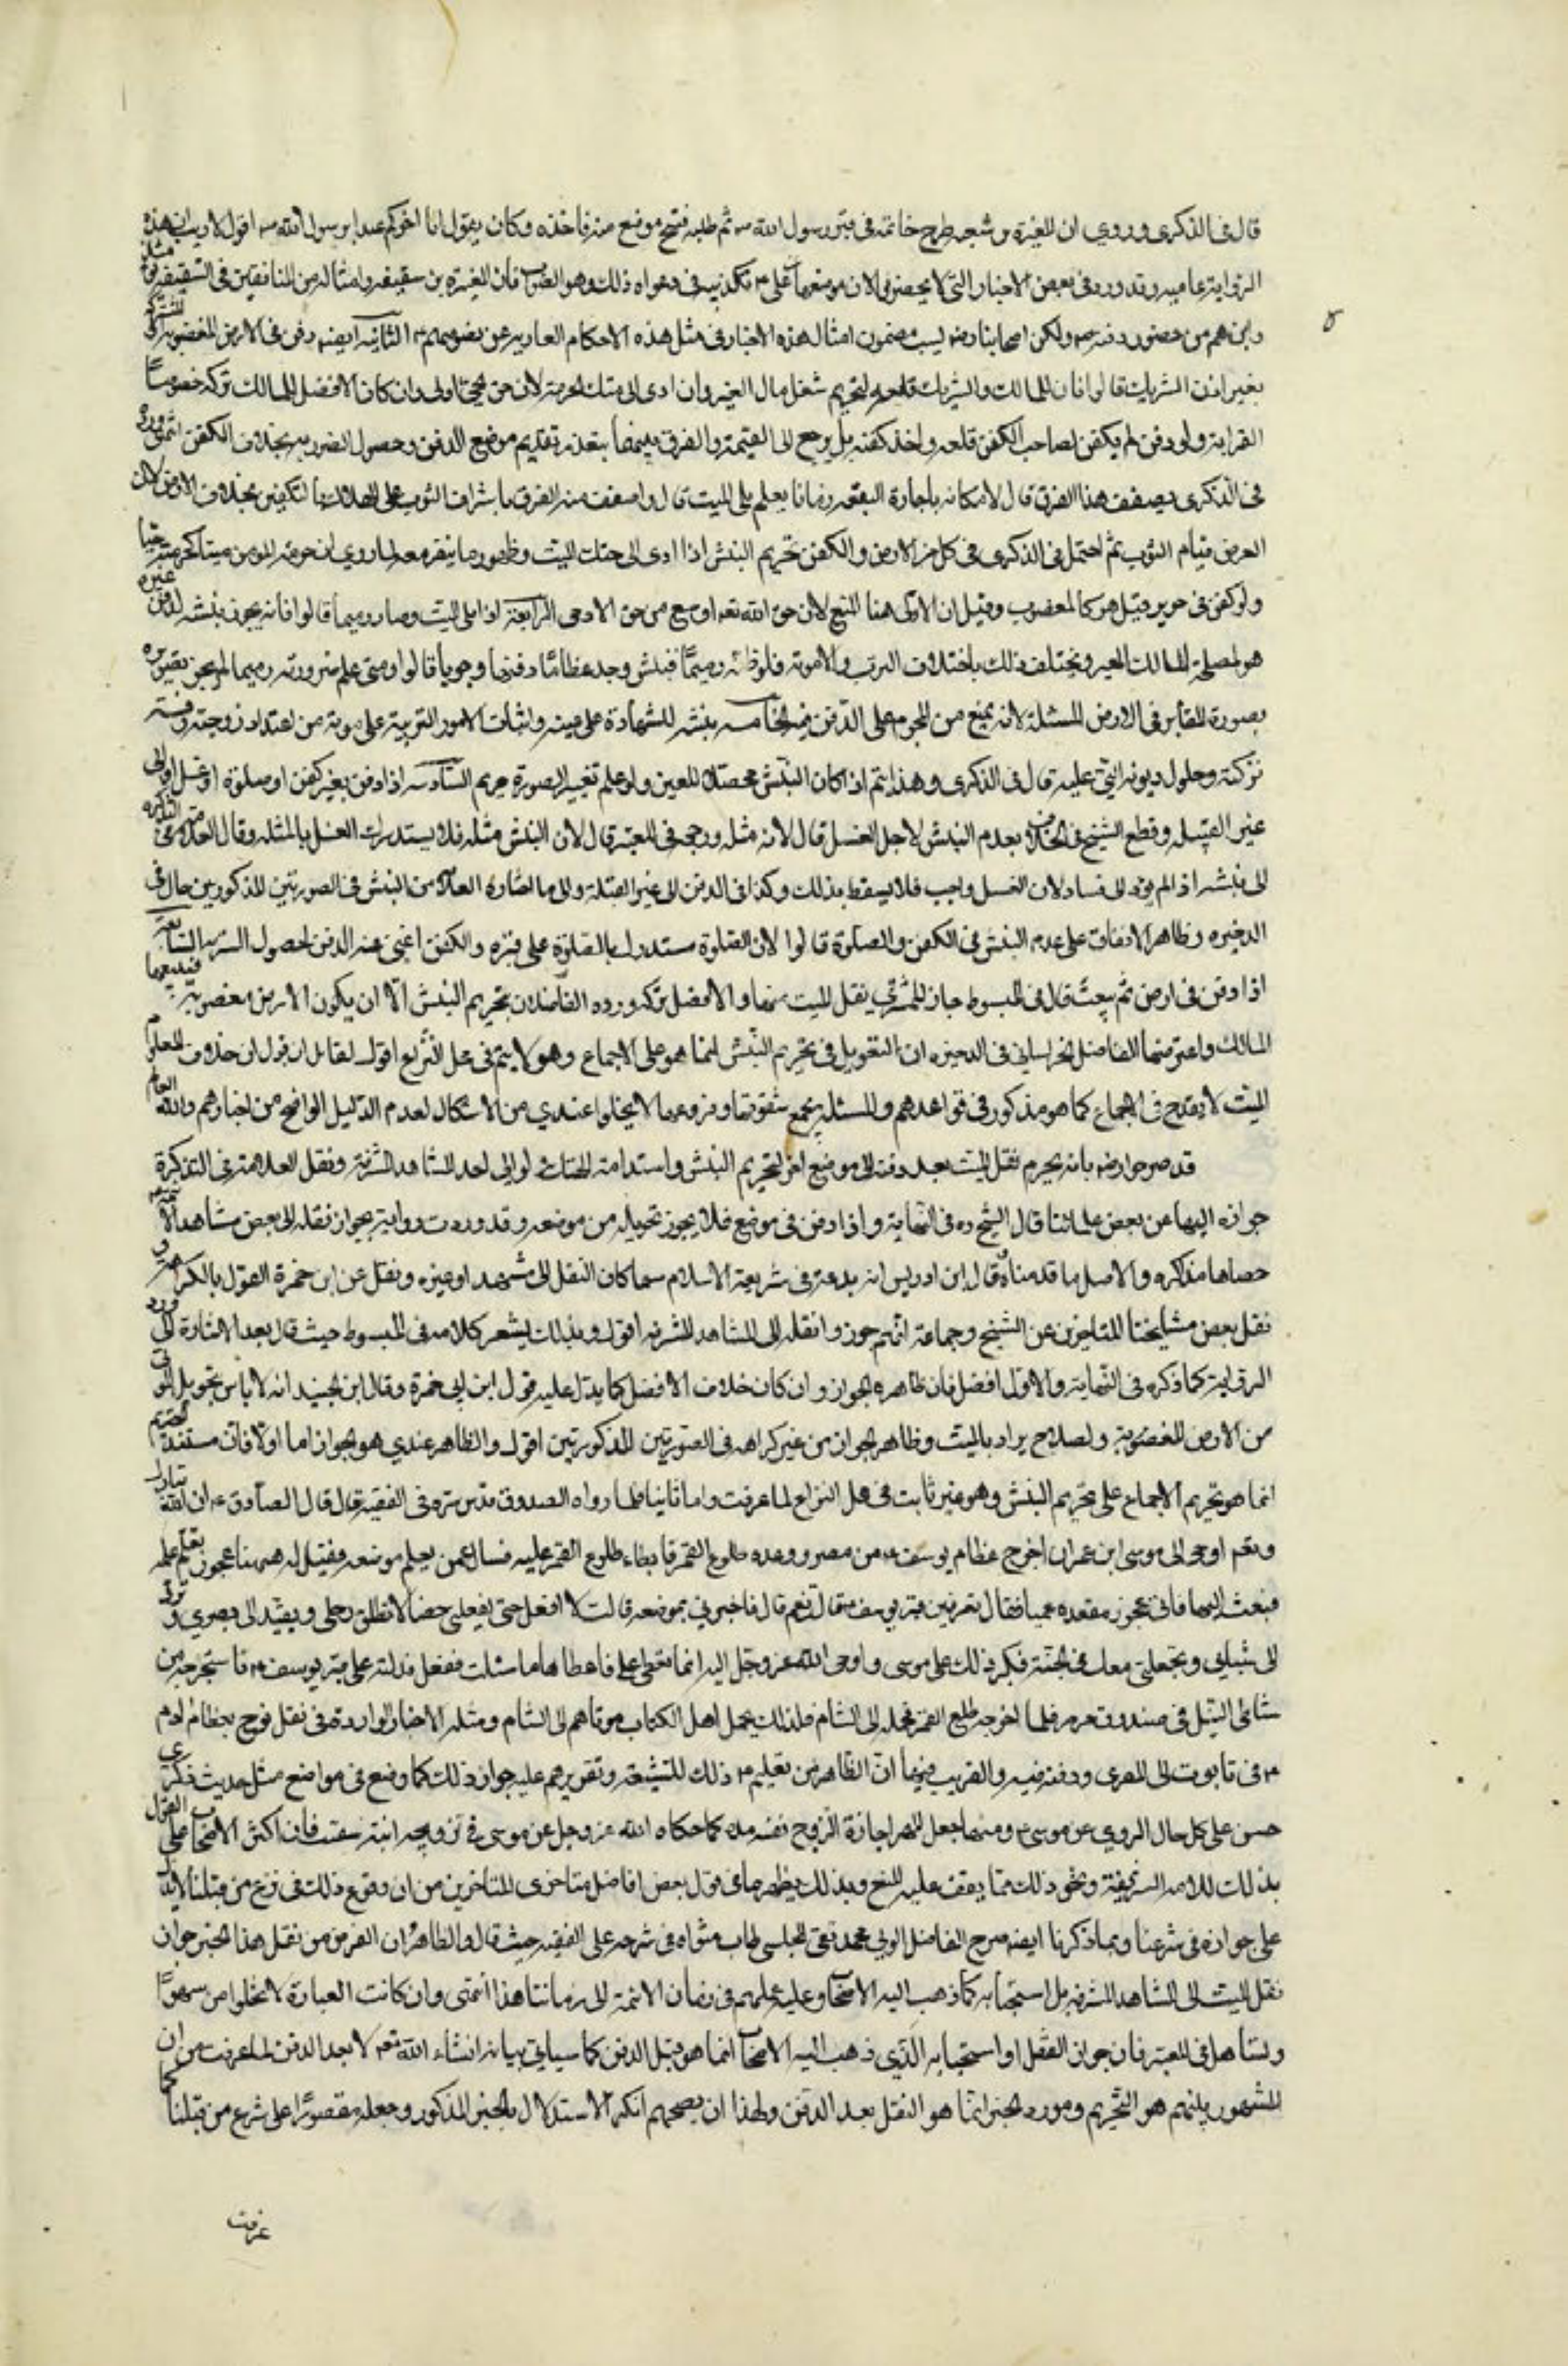 قال فى الذكرى وروي ان المغيرة بن شعبه طرح خاتمه فى قبر رسول الله ص ثم طلبه ففتح موضع منه فاخذه وكان يقول انا اخركم عهدا برسول الله ص اقول لا ريب ان هذه
الرواية عاميه وقد ورد فى بعض الاخبار التى لا يحضرنى الان موضعها عن على ع تكذيبه فى دعواه ذلك وهو الصواب فان المغيرة من سقيفه وامثاله من المنافقين فى السقيفة
واين هم من حضور دفنه ص ولكن اصحابنا رض مضمون امثال هذه الاخبار فى مثل هذه الاحكام العاريه عن نصوصهم ع الثانيه ايضه دفن فى الارض المغصوبه او المشتركه
بغير اذن الشريك قالوا فان للمالك والشريك قلعه لتحريم شغل مال الغير وان ادى الى هتك الحرمة لان حق الحى اولى وان كان الافضل للمالك تركه خصوصًا
القرابة ولو دفن لم يكن لصاحب الكفن قلعه واخذ كفنه بل يرجع الى القيمة والفرق بينهما بتعذر تقديم موضع الدفن وحصول الضرر به بخلاف الكفن انتهى ورده
فى الذكرى بضعف هذا الفرق قال لامكانه باجارة البقعه زمانا يعلم بلى الميت قال واضعف منه الفرق باشراف الثوب على الهلاك بالتكفين بخلاف الارض لان
الفرض قيام الثوب ثم احتمل فى الذكرى فى كل من الارض والكفن تحريم النبش اذا ادى الى هتك الميت وظهور ما ينفر معه لما روي ان حرمة المومن ميتا كحرمته حيا
ولو كفن فى حرير قيل هو كالمغصوب وقيل ان الاولى هنا المنع لان حق الله تعه اوسع من حق الادمى الرابعة اذا بلى الميت وصار رميما قالوا فانه يجوز نبشه لدفن غيره
او لمصلحة المالك المعير ويختلف ذلك باختلاف الترب والاهوية فلو ظنه رميمًا فنبش وجد عظامًا دفنها وجوبا قالوا ومتى علم صيرورته رميما لم يجز تصويره
بصورة المقابر فى الارض المسبلة لانه يمنع من الهجوم على الدفن فيه الخامسه ينبش للشهادة على عينه واثبات الامور المترتبة على موته من اعتداد زوجته وقسمة
تركته وحلول ديونه التى عليه قال فى الذكرى وهذا يتم اذا كان النبش محصلا للعين ولو علم تغيير الصورة حرم السادسه اذا دفن بغير كفن او صلوة او غسل او الى
غير القبله وقطع الشيخ فى الخلاف بعدم النبش لاجل الغسل قال لانه مثله ورجحه فى المعتبر قال لان النبش مثله فلا يستدرك الغسل بالمثله وقال العلامه فى التذكره
الى نبشه اذا لم يؤد الى فساد لان الغسل واجب فلا يسقط بذلك وكذا فى الدفن الى غير القبلة والى ما اختاره العلامه من النبش فى الصورتين المذكورتين مال فى
الذخيره وظاهر الاتفاق على عدم النبش فى الكفن والصلوة قالوا لان الصلوة مستدرك بالصلوة على قبره والكفن اغنى عنه الدفن لحصول الستر به السابعه
اذا دفن فى ارض ثم بيعت قال فى المبسوط جاز للمشترى نقل الميت منها والافضل تركه ورده الفاضلان بتحريم النبش الا ان يكون الارض مغصوبه فيبيعها
المالك واعترضهما الفاضل الخراسانى فى الذخيره ان التعويل فى تحريم النبش انما هو على الاجماع وهو لا يتم فى محل النزاع اقول لقائل ان يقول ان خلاف المعلوم
الميت لا يقدح فى الاجماع كما هو مذكور فى قواعدهم والمسئله بجميع شقوقها وفروعها لا يخلوا عندي من الاشكال لعدم الدليل الواضح من اخبارهم والله العالم
قد صرحوا رض بانه يحرم نقل الميت بعد دفنه الى موضع اخر لتحريم النبش واستدامة الهتك ولو الى احد المشاهد المشرفة ونقل العلامة فى التذكرة
جوازه اليها عن بعض علمائنا قال الشيخ ره فى النهاية واذا دفن فى موضع فلا يجوز تحويله من موضعه وقد وردت رواية بجواز نقله الى بعض مشاهد الائمه
سمعناها مذاكره والاصل ما قدمناه وقال ابن ادريس انه بدعة فى شريعة الاسلام سواء كان النقل الى مشهد او غيره ونقل عن ابن حمزة القول بالكراهه و
نقل بعض مشايخنا المتاخرين عن الشيخ وجماعة انهم جوزوا نقله الى المشاهد المشرفه اقول وبذلك يشعر كلامه فى المبسوط حيث قال بعد الاشارة الى ورود
الرواية كما ذكره فى النهاية والاول افضل فان ظاهره الجواز وان كان خلاف الافضل كما يدل عليه قول ابن ابى حمزة وقال ابن الجنيد انه لا باس بتحويل الموتى
من الارض المغصوبة ولصلاح يراد بالميت وظاهره الجواز من غير كراهه فى الصورتين المذكورتين اقول والظاهر عندي هو الجواز اما اولا فان مستند تحريم
انما هو تحريم الاجماع على تحريم النبش وهو غير ثابت فى محل النزاع لما عرفت واما ثانيا فلما رواه الصدوق قدس سره فى الفقيه قال قال الصادق ع ان الله تبارك
وتعه اوحى الى موسى ابن عمران اخرج عظام يوسف ع من مصر ووعده طلوع القمر فابطاء طلوع القمر عليه فسال عمن يعلم موضعه فقيل له ههنا عجوز تعلم علمه
فبعث اليها فاتى بعجوز مقعده عميا فقال تعرفين قبر يوسف فقالت نعم قال فاخبرنى بموضعه قالت لا افعل حتى تعطينى خصالا تطلق رجلى وتعيد الى بصري وترد
الى شبابى وتجعلنى معك فى الجنة فكبر ذلك على موسى واوحى الله عز وجل اليه انما تعطى على فاعطاها ما سئلت ففعل فدلته على قبر يوسف ع فاستخرجه من
شاطى النيل فى صندوق مرمر فلما اخرجه طلع القمر فحمله الى الشام فلذلك يحمل اهل الكتاب موتاهم الى الشام ومثله الاخبار الواردة فى نقل نوح عظام ادم
ع فى تابوت الى الغرى ودفنه فيه والقريب فيهما ان الظاهر من نقلهم ع ذلك للشيعة وتقريرهم عليه جواز ذلك كما وضع فى مواضع مثل حديث ذكرى
حسن على كل حال المروي عن موسى ع ومنها جعل المهر اجازة الزوج نفسه مده كما حكاه الله عز وجل عن موسى فى تزويجه ابنة شعيب فان اكثر الاصحاب على القول
بذلك للايه الشريفة ونحو ذلك مما يقف عليه المتتبع وبذلك يظهر ما فى قول بعض افاضل متاخرى المتاخرين من ان وقوع ذلك فى شرع من قبلنا لا يدل
على جوازه فى شرعنا وبما ذكرنا ايضه صرح الفاضل المولى محمد تقى المجلسى طاب مثواه فى شرحه على الفقيه حيث قال والظاهر ان الغرض من نقل هذا الخبر جواز
نقل الميت الى المشاهد المشرفه بل استحبابه كما ذهب اليه الاصحاب وعليه عملهم فى زمان الائمة الى زماننا هذا انتهى وان كانت العبارة لا تخلوا من سهوًا
وتساهل فى التعبير فان جواز النقل او استحبابه الذي ذهب اليه الاصحاب انما هو قبل الدفن كما سياتى بيانه انشاء الله تعه لا بعد الدفن لما عرفت من ان
المشهور بينهم هو التحريم ومورد الخبر انما هو النقل بعد الدفن ولهذا ان بعضهم انكر الاستدلال بالخبر المذكور وجعله مقصورًا على شرع من قبلنا كما
عرفت